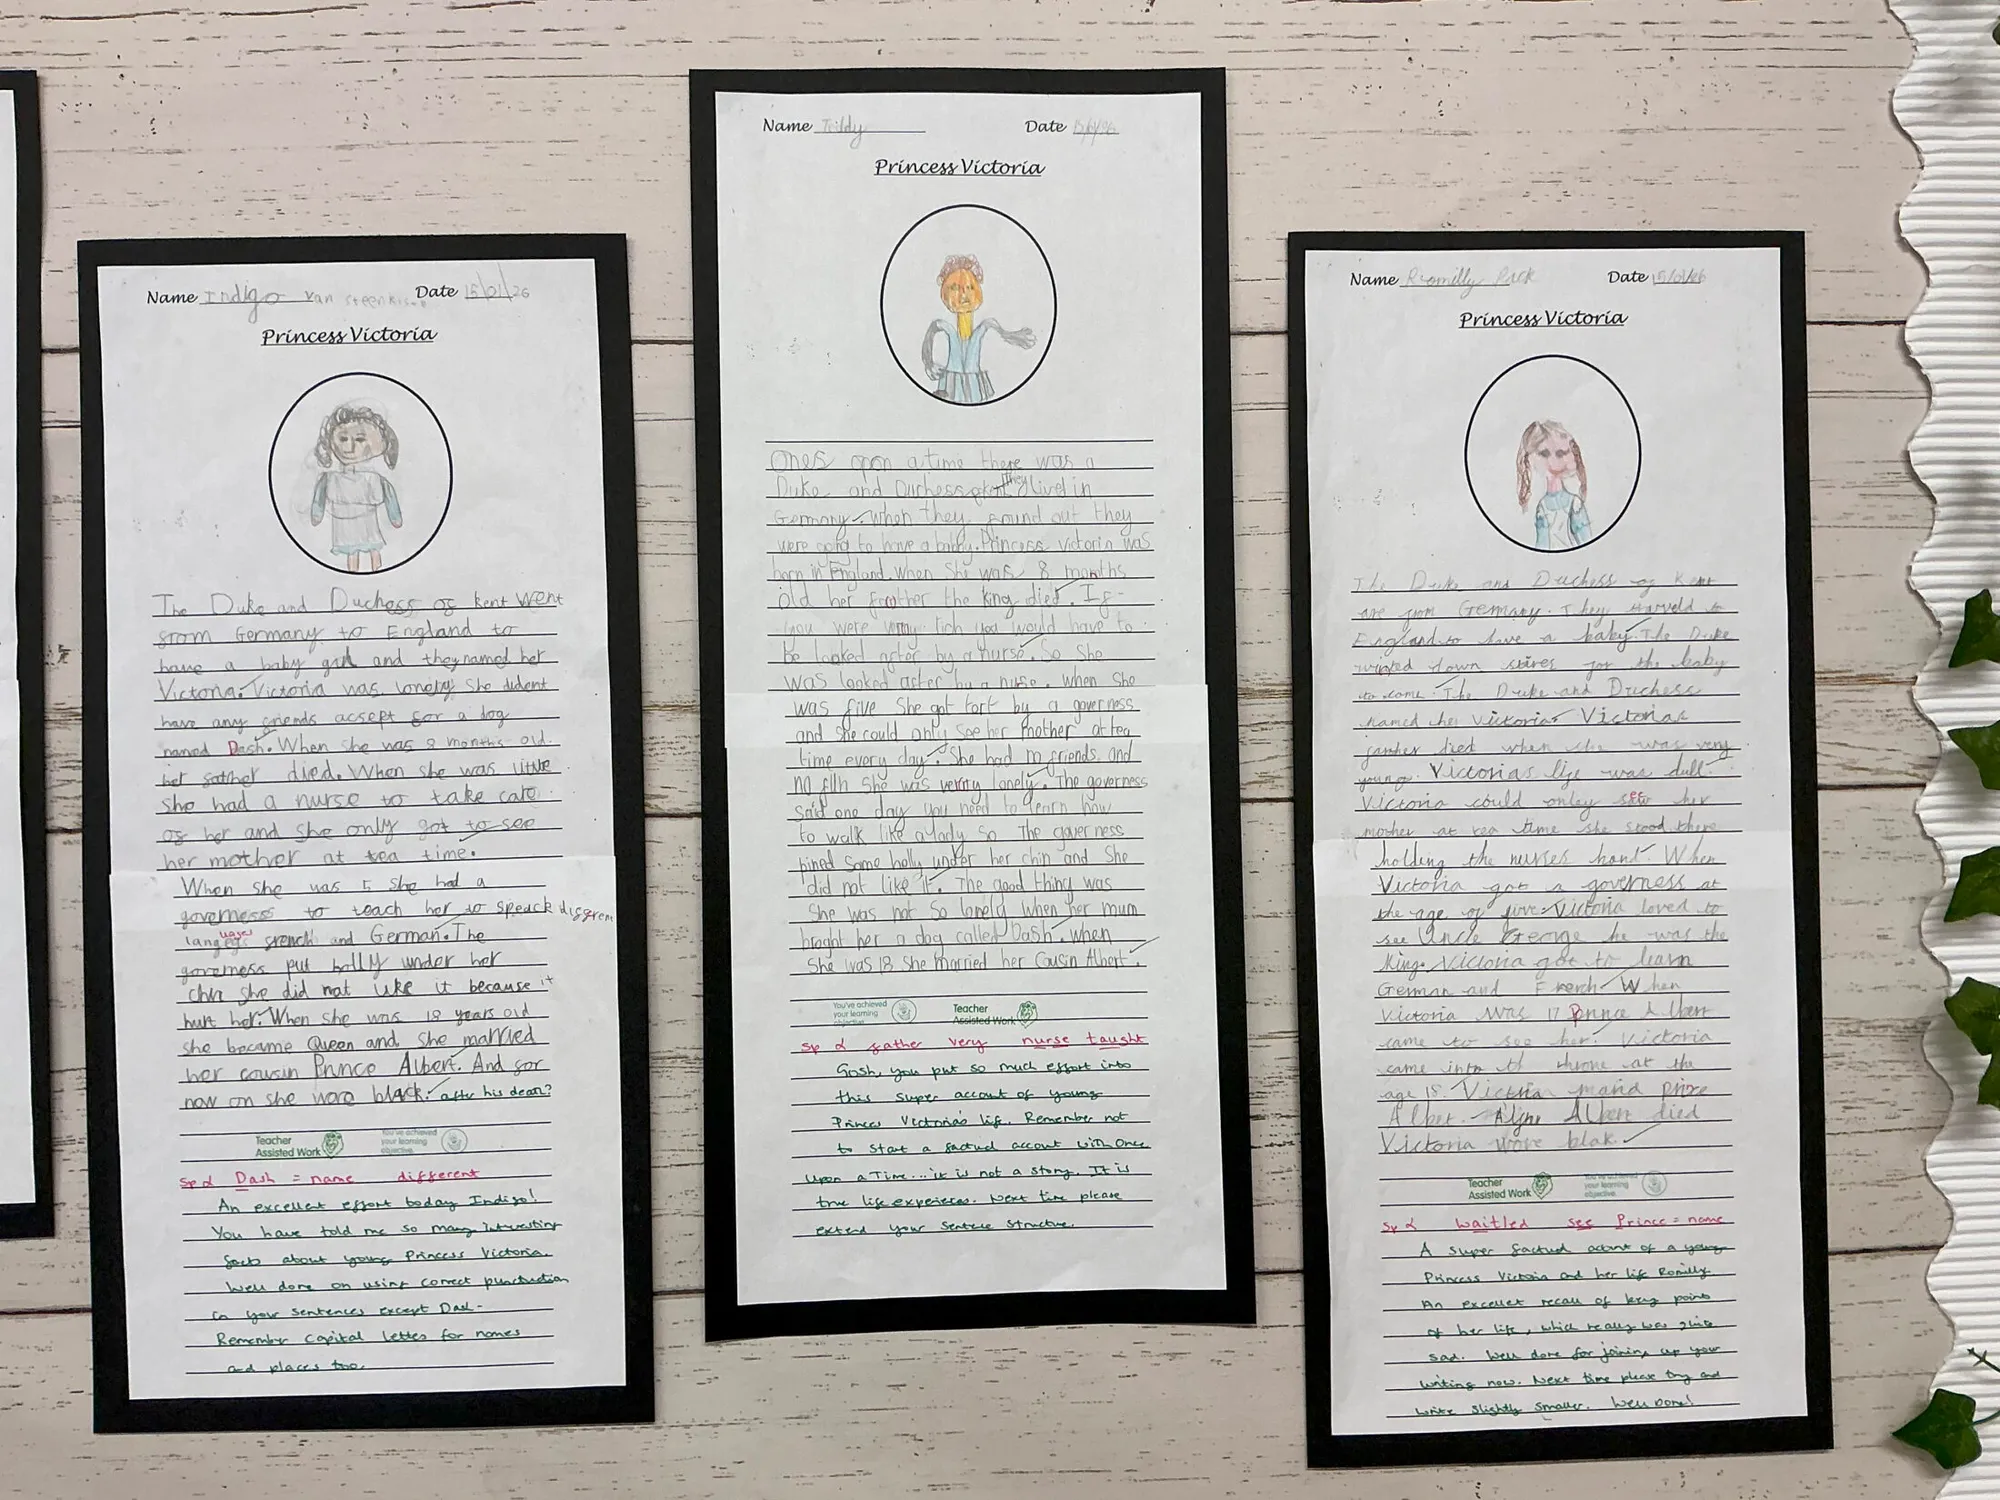 Name Indigo van Date 15/01/26
Princess Victoria
The Duke and Duchess of kent went
from Germany to England to
have a baby girl and they named her
Victoria. Victoria was lonely she dident
have any friends acsept for a dog
named Dash. When she was 8 months old
her father died. When she was little
she had a nurse to take care
of her and she only got to see
her mother at tea time.
When she was 5 she had a
governess to teach her to speack diffrent
french and German. The
governess put holly under her
chin she did not like it because it
hurt her. When she was 18 years old
she became Queen and she married
her cousin Prince Albert. And for
now on she wore black. after his death?
Teacher
Assisted Work
You've achieved
your learning
objective
sp Dash = name different
An excellent effort today Indigo!
You have told me so many interesting
facts about young Princess Victoria.
Well done on using correct punctuation
in your sentences except Dash-
Remember capital letters for names
and places too.
Name Teddy Date
Princess Victoria
Ones opon a time there was a
Duke and Duchess they lived in
Germany. When they found out they
were going to have a baby. Princess Victoria was
born in England. When she was 8 months
old her the king died. If
you were very rich you would have to
be looked after by a nurse. So she
was looked after by a nurse. When she
was five She got tort by a governess
and she could only see her mother at tea
time every day. She had no friends and
no She was lonely. The governess
said one day you need to learn how
to walk like a lady so The governess
pined some holly under her chin and She
did not like it. The good thing was
She was not So lonely when her mum
broght her a dog called Dash. When
She was 18 She married her Cousin Albert.
You've achieved
your learning
objective
Teacher
Assisted Work
sp father very nurse taught
Gosh, you put so much effort into
this super account of young
Princess Victoria's life. Remember not
to start a factual account with Once
upon a Time... it is not a story. It is
true life experiences. Next time please
extend your sentence structure.
Name Romilly Date 15/01/26
Princess Victoria
The Duke and Duchess of Kent
are from Germany. They to
England to have a baby. The Duke
down for the baby
to come. The Duke and Duchess
named her Victoria. Victorias
father died when she was very
young. Victorias life was dull.
Victoria could onley see her
mother at tea time she stood there
holding the nurses hand. When
Victoria got a governess at
the age of five. Victoria loved to
see Uncle George he was the
King. Victoria got to learn
German and French. When
Victoria was 17 Prince Albert
came to see her. Victoria
came into throne at the
age 18. Victoria
Albert. Albert died
Victoria wore blak.
Teacher
Assisted Work
You've achieved
your learning
objective
sp see Prince = name
A super factual account of a young
Princess Victoria and her life Romilly.
An excellent recall of key points
of her life, which really was quite
sad. Well done for joining up your
writing now. Next time please try and
write slightly smaller. Well Done!